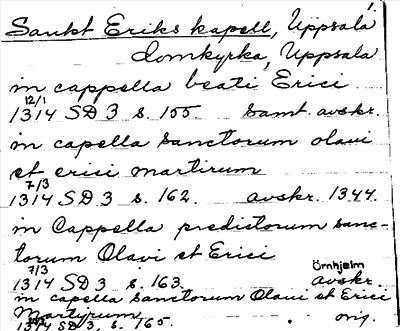 1.
Sankt Eriks kapell, Uppsala
domkyrka, Uppsala
in cappella beati Erici
12/1
1314 SD 3 s. 155. samt. avskr.
in capella sanctorum olavi
et erici martirum
7/3
1314 SD 3 s. 162. avskr. 1344.
in Cappella predictorum sanc-
torum Olavi et Erici
7/3 Örnhjelm
1314 SD 3 s. 163. avskr.
in capella sanctorum Olavi et Erici
Martyrum,
1314 SD 3, s. 165. orig.